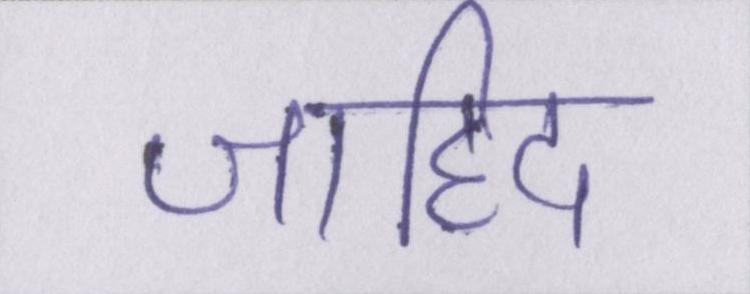 जाहिद